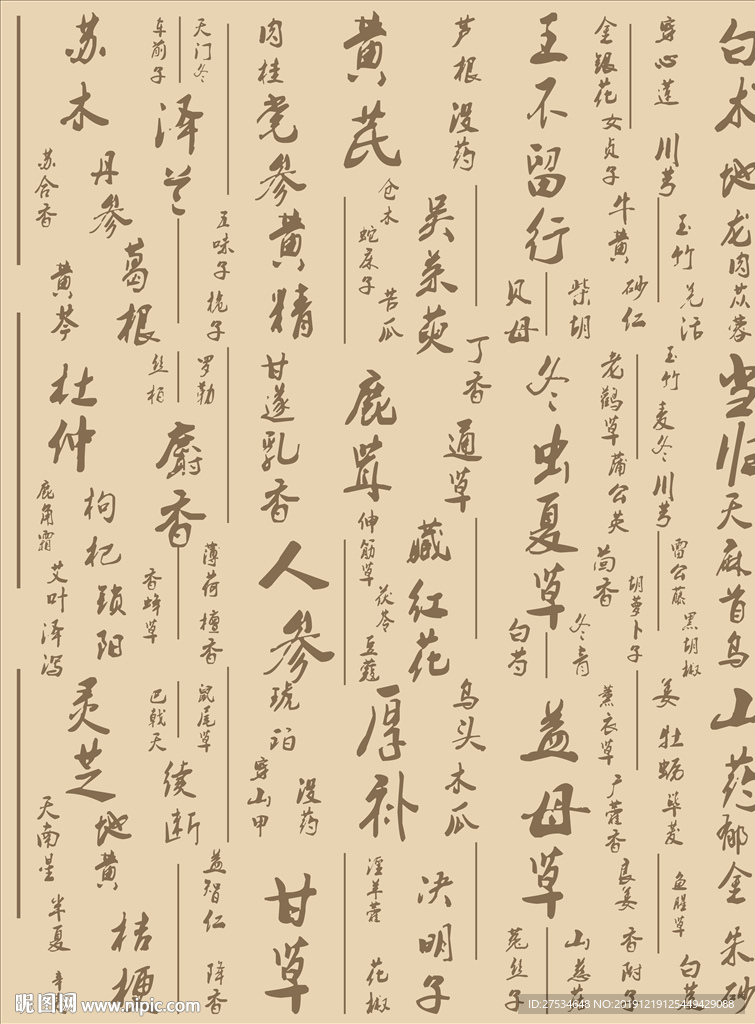 白术
地龙
肉苁蓉
当归
天麻
首乌
山药
郁金
朱砂
穿心莲
川芎
玉竹
羌活
玉竹
麦冬
川芎
雷公藤
黑胡椒
胡萝卜子
姜
牡蛎
毕茇
鱼腥草
白芷
金银花
女贞子
牛黄
砂仁
老鹳草
蒲公英
茴香
薰衣草
广藿香
良姜
香附子
王不留行
贝母
柴胡
冬虫夏草
白芍
冬青
益母草
菟丝子
山慈菇
芦根
没药
吴茱萸
丁香
通草
藏红花
乌头
木瓜
决明子
黄芪
仓木
蛇床子
苦瓜
鹿茸
伸筋草
茯苓
豆蔻
厚补
淫羊藿
花椒
肉桂
党参
黄精
甘遂
乳香
人参
琥珀
穿山甲
没药
甘草
天门冬
车前子
泽兰
五味子
桅子
罗勒
丝柏
麝香
薄荷
檀香
香蜂草
鼠尾草
巴戟天
续断
益智仁
降香
苏木
苏合香
丹参
葛根
黄芩
杜仲
鹿角霜
枸杞
锁阳
艾叶
泽泻
灵芝
地黄
天南星
半夏
桔梗
昵图网 www.nipic.com
ID:27534648 NO:20191219125449429088